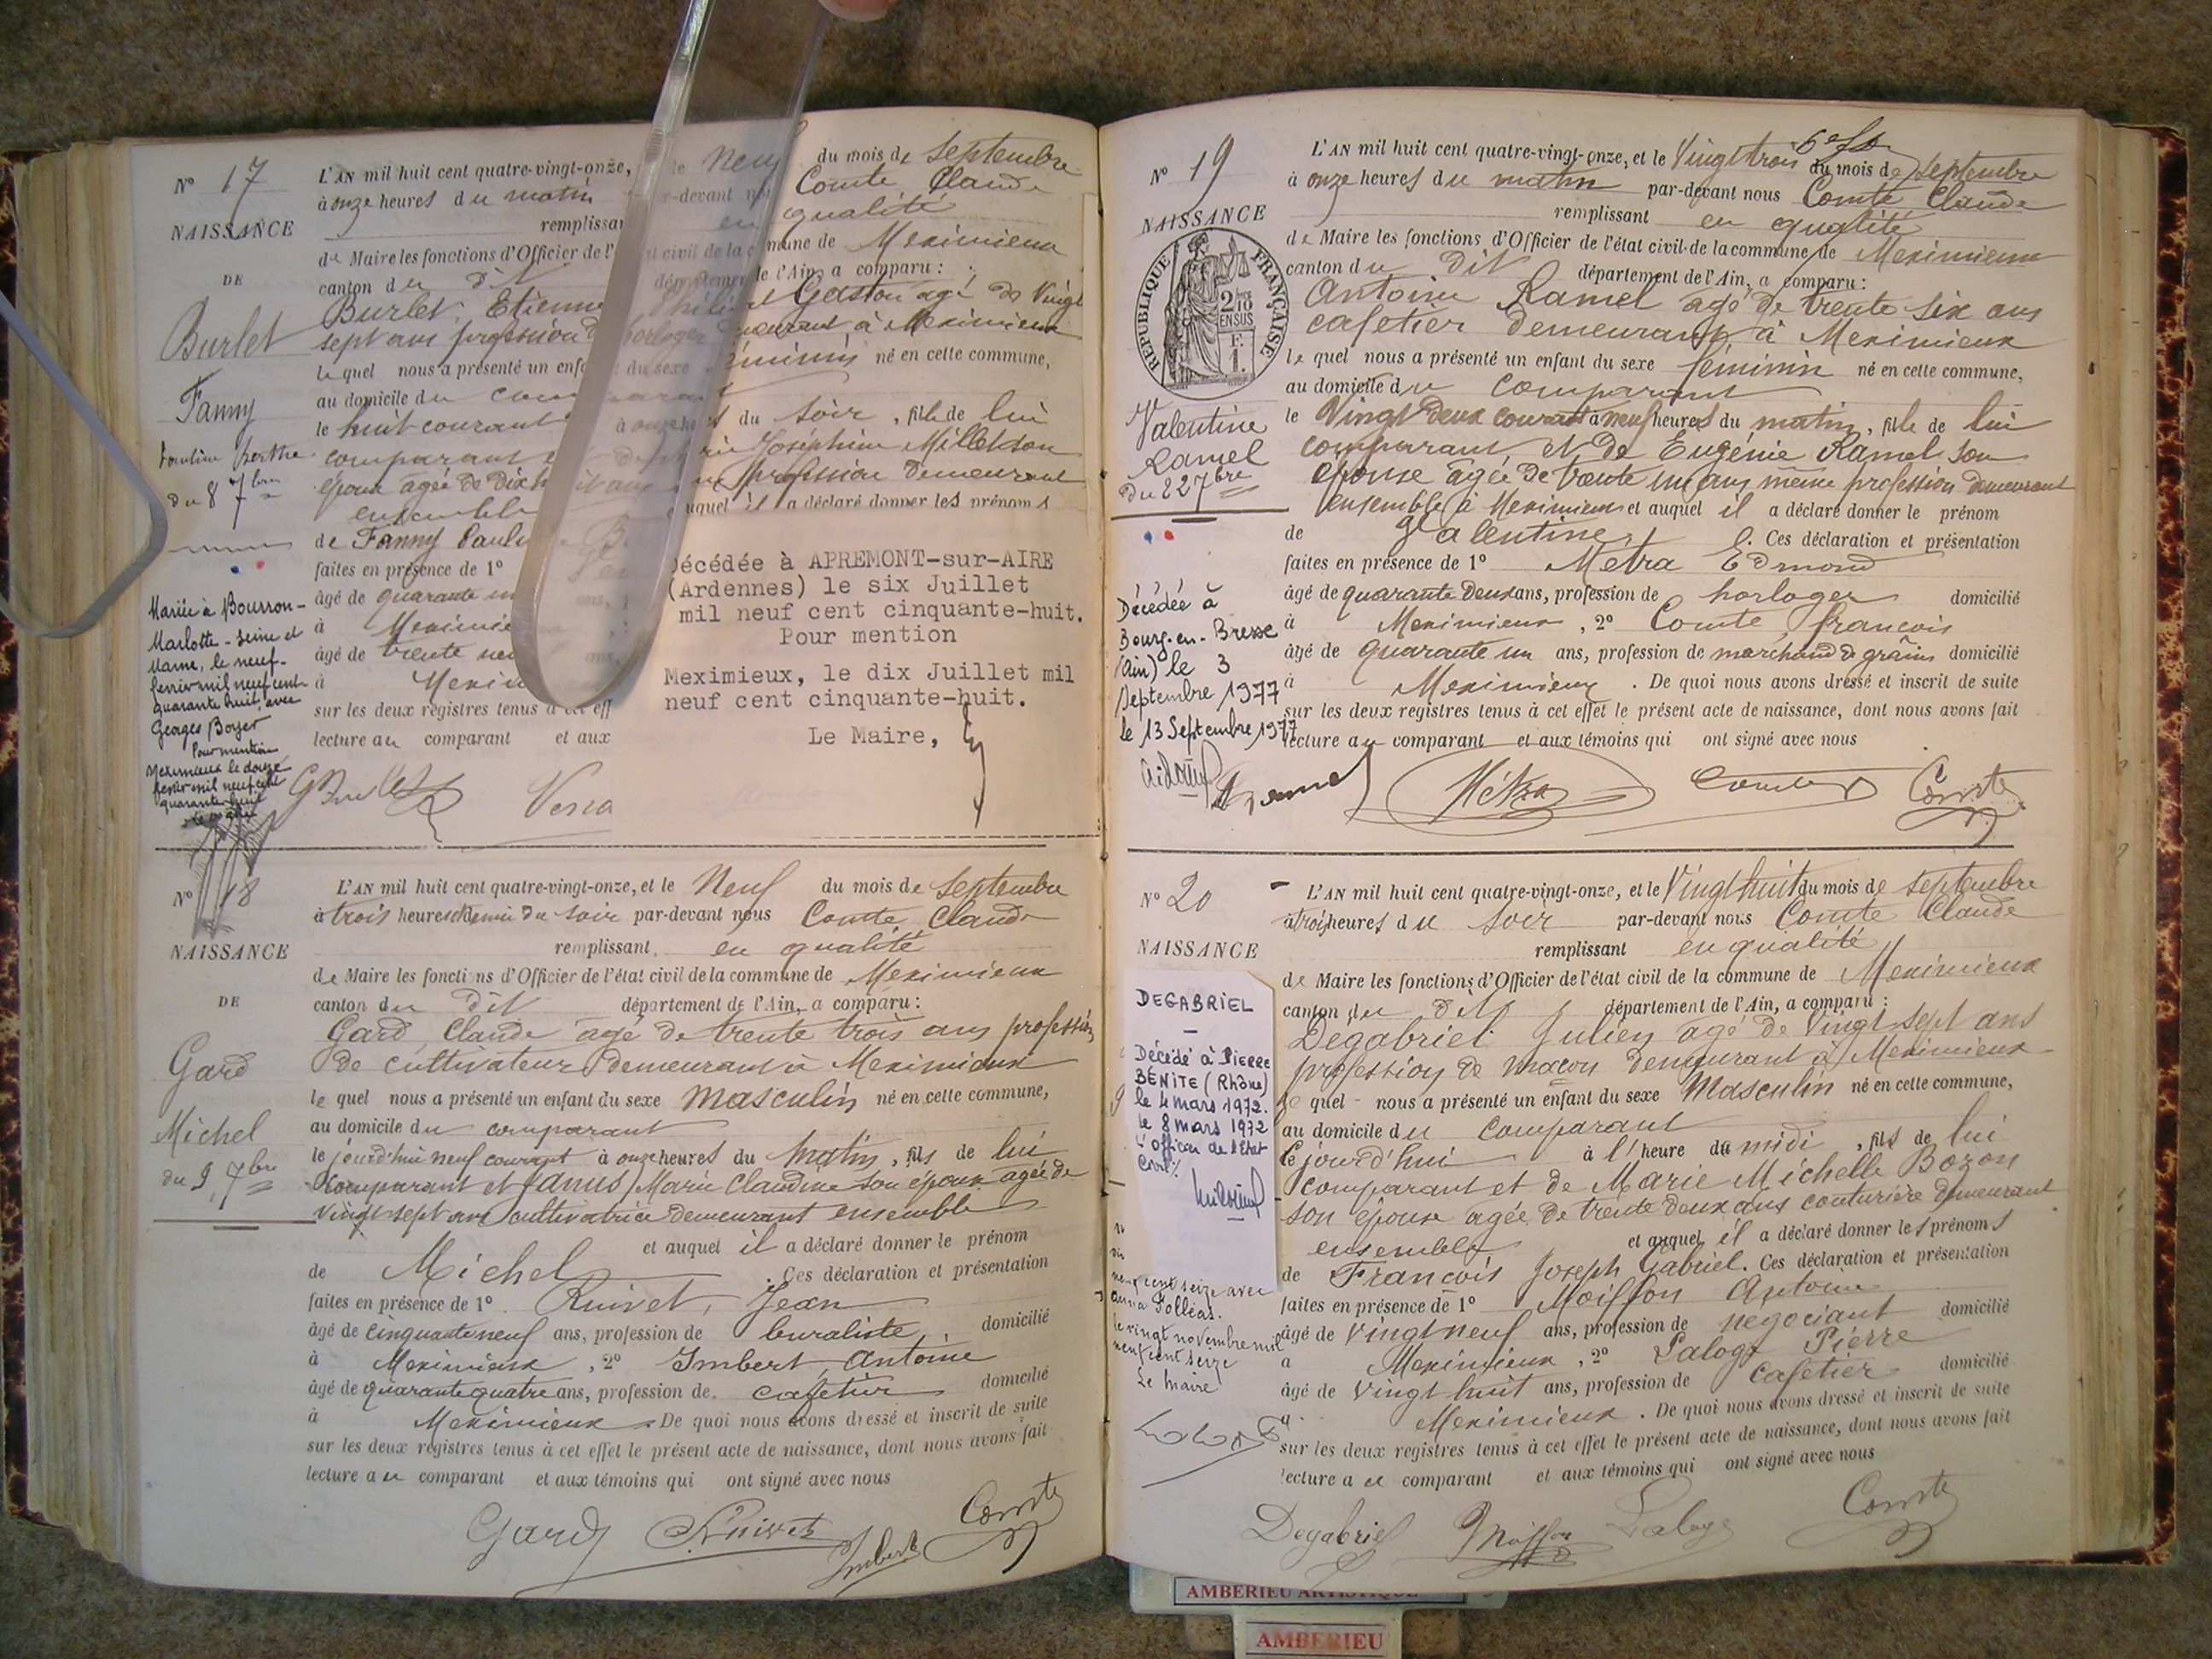 N° 17
NAISSANCE
DE
Burlet
Fanny
Pauline Berthe
du 8 7bre
Mariée à Bourron-
Marlotte - Seine et
Marne, le neuf
février mil neuf cent
quarante huit, avec
Georges Boyer
Pour mention
Meximieux le douze
février mil neuf cent
quarante huit
L'AN mil huit cent quatre-vingt-onze, le neuf du mois de septembre
à onze heures du matin par-devant nous Comte Claude
remplissant en qualité
de Maire les fonctions d'Officier de l'état civil de la commune de Meximieux
canton du dit département de l'Ain, a comparu :
Burlet, Etienne Philibert Gaston agé de vingt
sept ans profession d'horloger demeurant à Meximieux
lequel nous a présenté un enfant du sexe féminin né en cette commune,
au domicile du comparant
le huit courant à onze heures du soir, fille de lui
comparant et de Joséphine Milletson
épouse agée de dix huit ans profession demeurant
ensemble auquel il a déclaré donner les prénoms
de Fanny Pauline
faites en présence de 1°
âgé de quarante un ans,
à Meximieux
âgé de trente neuf ans,
à Meximieux
sur les deux registres tenus à cet eff
lecture au comparant et aux
Décédée à APREMONT-sur-AIRE
(Ardennes) le six Juillet
mil neuf cent cinquante-huit.
Pour mention
Meximieux, le dix Juillet mil
neuf cent cinquante-huit.
Le Maire,
N° 18
NAISSANCE
DE
Gard
Michel
du 9 7bre
L'AN mil huit cent quatre-vingt-onze, et le neuf du mois de septembre
à trois heures et demie du soir par-devant nous Comte Claude
remplissant en qualité
de Maire les fonctions d'Officier de l'état civil de la commune de Meximieux
canton du dit département de l'Ain, a comparu :
Gard, Claude agé de trente trois ans profession
de cultivateur demeurant à Meximieux
lequel nous a présenté un enfant du sexe masculin né en cette commune,
au domicile du comparant
le jourd'hui neuf courant à onze heures du matin, fils de lui
comparant et Janus Marie Claudine son épouse agée de
vingt sept ans cultivatrice demeurant ensemble
et auquel il a déclaré donner le prénom
de Michel. Ces déclaration et présentation
faites en présence de 1° Ruivet, Jean
âgé de cinquante neuf ans, profession de buraliste, domicilié
à Meximieux, 2° Imbert Antoine
âgé de quarante quatre ans, profession de cafetier domicilié
à Meximieux. De quoi nous avons dressé et inscrit de suite
sur les deux registres tenus à cet effet le présent acte de naissance, dont nous avons fait
lecture au comparant et aux témoins qui ont signé avec nous
Gard Ruivet Imbert Comte
N° 19
NAISSANCE
REPUBLIQUE FRANÇAISE
2/10 EN SUS
1 F.
Valentine
Ramel
du 22 7bre
Décédée à
Bourg-en-Bresse
(Ain) le 3
Septembre 1977
le 13 Septembre 1977
L'AN mil huit cent quatre-vingt-onze, et le vingt trois du mois de septembre
à onze heures du matin par-devant nous Comte Claude
remplissant en qualité
de Maire les fonctions d'Officier de l'état civil de la commune de Meximieux
canton du dit département de l'Ain, a comparu :
Antoine Ramel agé de trente six ans
cafetier demeurant à Meximieux
lequel nous a présenté un enfant du sexe féminin né en cette commune,
au domicile du comparant
le vingt deux courant à neuf heures du matin, fille de lui
comparant et de Eugénie Ramel son
épouse agée de trente un ans même profession demeurant
ensemble à Meximieux et auquel il a déclaré donner le prénom
de Valentine. Ces déclaration et présentation
faites en présence de 1° Metra Edmond
âgé de quarante deux ans, profession de horloger domicilié
à Meximieux, 2° Comte françois
âgé de quarante un ans, profession de marchand de grains domicilié
à Meximieux. De quoi nous avons dressé et inscrit de suite
sur les deux registres tenus à cet effet le présent acte de naissance, dont nous avons fait
lecture au comparant et aux témoins qui ont signé avec nous
Ramel Métra Comte Comte
N° 20
NAISSANCE
DEGABRIEL
Décédé à PIERRE
BÉNITE (Rhône)
le 4 mars 1972.
le 8 mars 1972
L'officier de l'Etat
Civil
neuf cent seize avec
Folléas.
le vingt novembre mil
neuf cent seize
Le maire
L'AN mil huit cent quatre-vingt-onze, et le vingt huit du mois de septembre
à trois heures du soir par-devant nous Comte Claude
remplissant en qualité
de Maire les fonctions d'Officier de l'état civil de la commune de Meximieux
canton du dit département de l'Ain, a comparu :
Degabriel Julien agé de vingt sept ans
profession de maçon demeurant à Meximieux
lequel nous a présenté un enfant du sexe masculin né en cette commune,
au domicile du comparant
le jourd'hui à l'heure du midi, fils de lui
comparant et de Marie Michelle Bozon
son épouse agée de trente deux ans couturière demeurant
ensemble et auquel il a déclaré donner les prénoms
de François Joseph Gabriel. Ces déclaration et présentation
faites en présence de 1° Moisson Antoine
âgé de vingt neuf ans, profession de négociant domicilié
à Meximieux, 2° Laloge Pierre
âgé de vingt huit ans, profession de cafetier domicilié
à Meximieux. De quoi nous avons dressé et inscrit de suite
sur les deux registres tenus à cet effet le présent acte de naissance, dont nous avons fait
lecture au comparant et aux témoins qui ont signé avec nous
Degabriel Moisson Laloge Comte
AMBERIEU ARTISTIQUE
AMBERIEU